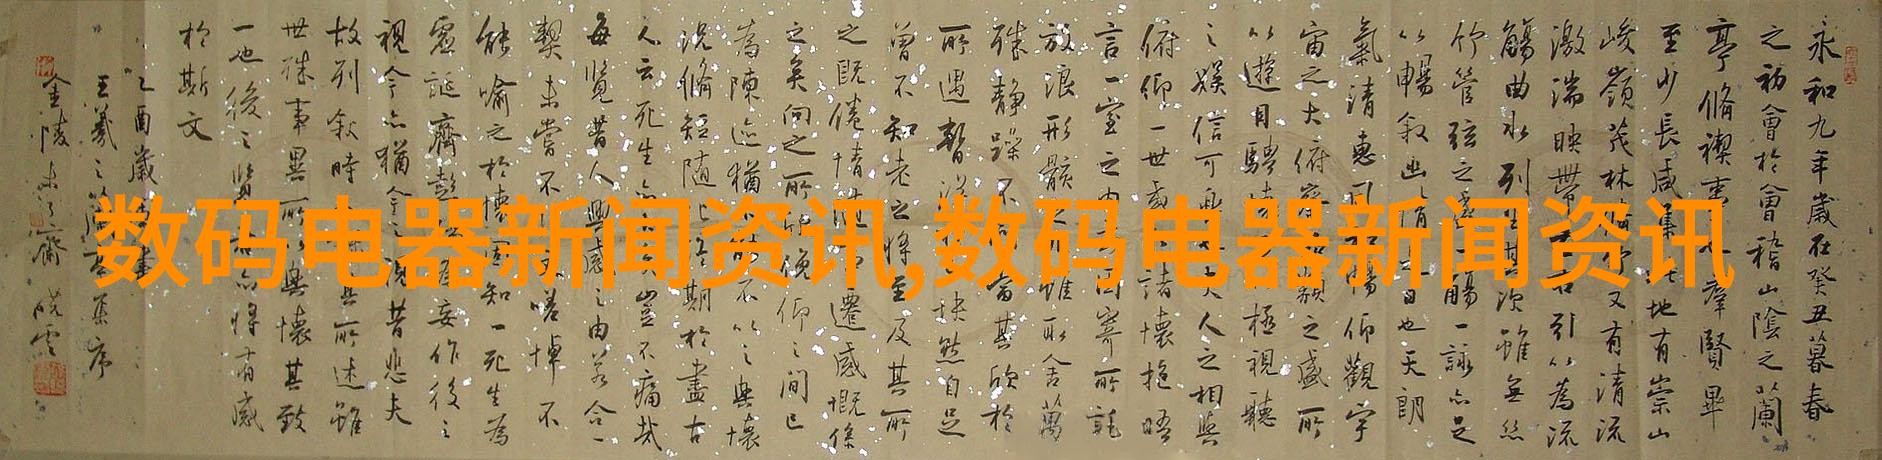 永和九年歲在癸丑暮春
之初會於會稽山陰之蘭
亭脩禊事 羣賢畢
至少長咸集 地有崇山
峻嶺茂林 又有清流
激湍映帶 右引以為流
觴曲水列坐其次雖無絲
竹管弦之盛一觴一詠亦足
以暢敘幽情 日也天朗
氣清惠風和暢仰觀宇
宙之大俯察 類之盛所
以遊目騁 極視聽
之娛信可 夫人之相與
俯仰一世或 諸懷抱晤
言一室之內 因寄所託
放浪形骸 雖取舍萬
殊靜躁不同 當其欣於
所遇暫 快然自足
曾不知老之將至及其所
之既倦情隨 遷感慨係
之矣向之所 俛仰之間已
為陳迹猶 不以之興懷
況脩短隨 期於盡古
人云死生亦 豈不痛哉
每覽昔人興感之由若合一
契未嘗不 嗟悼不
能喻之於懷固知一死生為
虛誕齊彭 妄作後之
視今亦猶今之視昔悲夫
故列敘時 其所述雖
世殊事異所以興懷其致
一也後之覽 亦將有感
於斯文
乙酉歲
王羲之 集序
金陵 齋
数码电器新闻资讯,数码电器新闻资讯